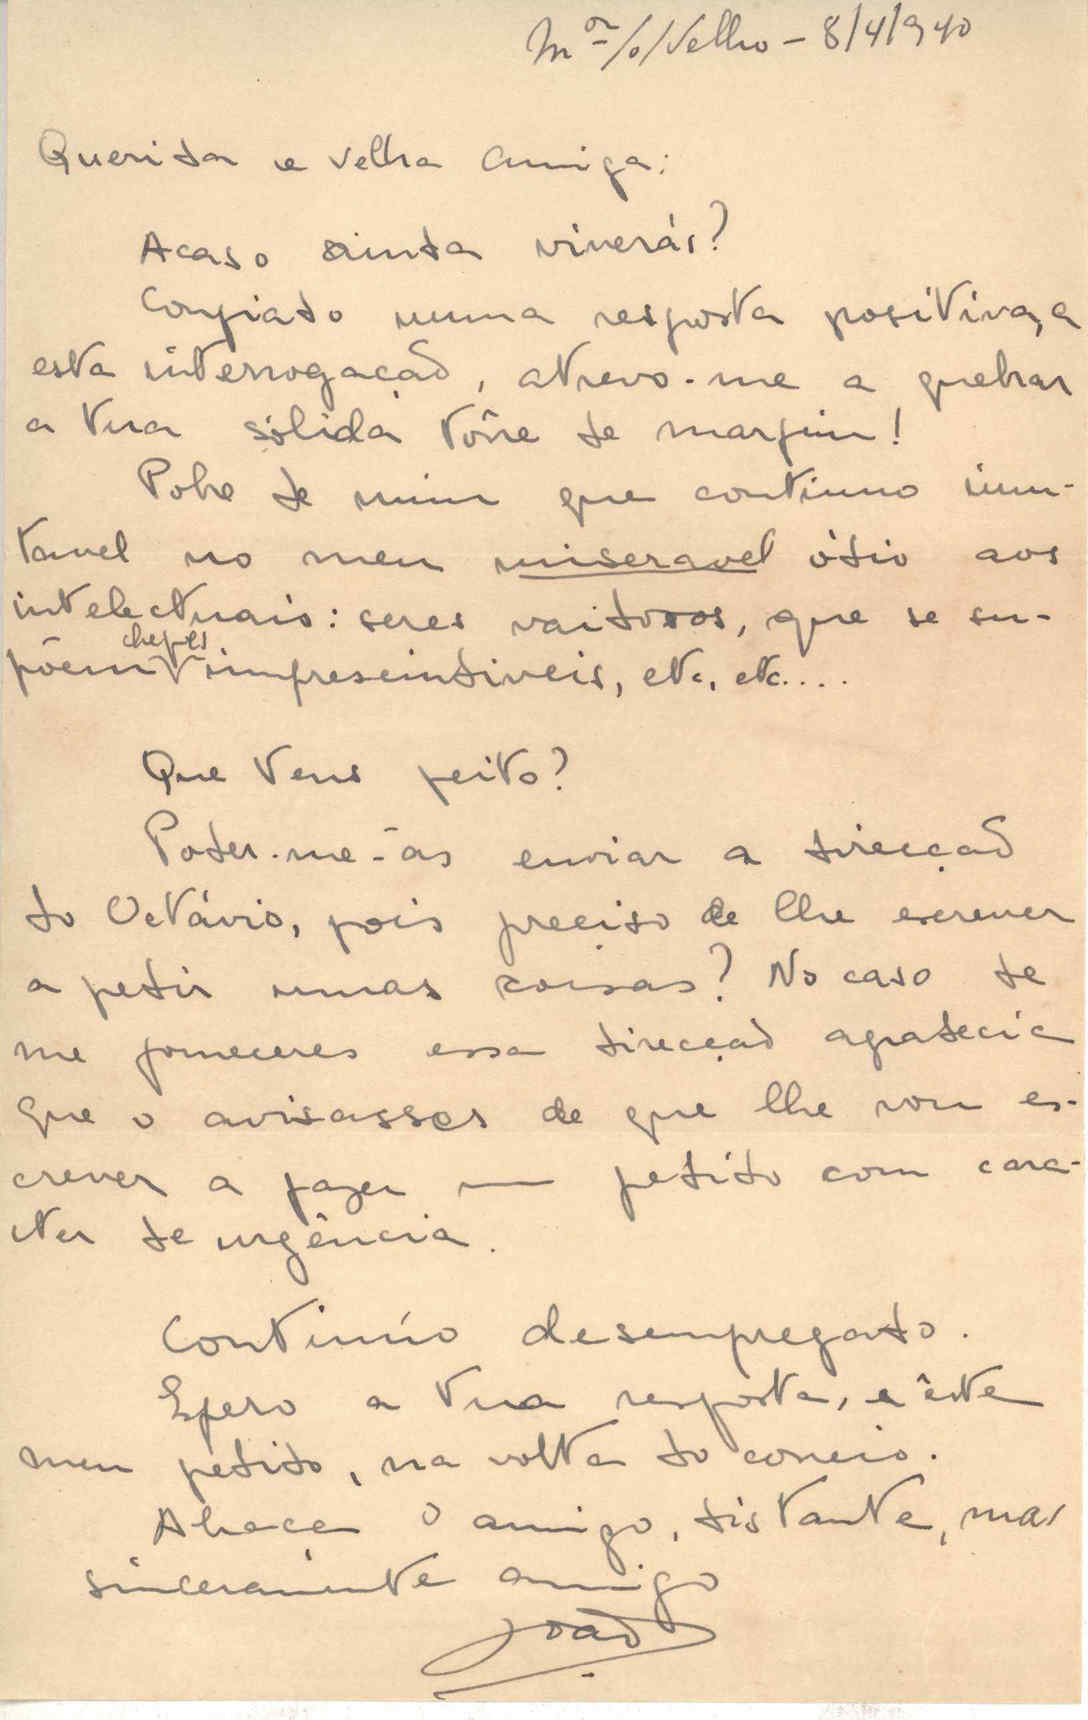 Mor/o/Velho - 8/4/940
Querida e velha amiga:
Acaso ainda viverás?
Confiado numa resposta positiva, a
esta interrogação, atrevo-me a quebrar
a tua sólida tôrre de marfim!
Pobre de mim que continuo imu-
tavel no meu miseravel ódio aos
intelectuais: seres vaidosos, que se su-
põem chefes imprescindiveis, etc, etc....
Que tens feito?
Poder-me-ás enviar a direcção
do Octávio, pois preciso de lhe escrever
a pedir umas coisas? No caso de
me forneceres essa direcção agradecia
que o avisasses de que lhe vou es-
crever a fazer um pedido com cara-
cter de urgência.
Continúo desempregado.
Espero a tua resposta, a êste
meu pedido, na volta do correio.
Abraça o amigo, distante, mas
sinceramente amigo
João